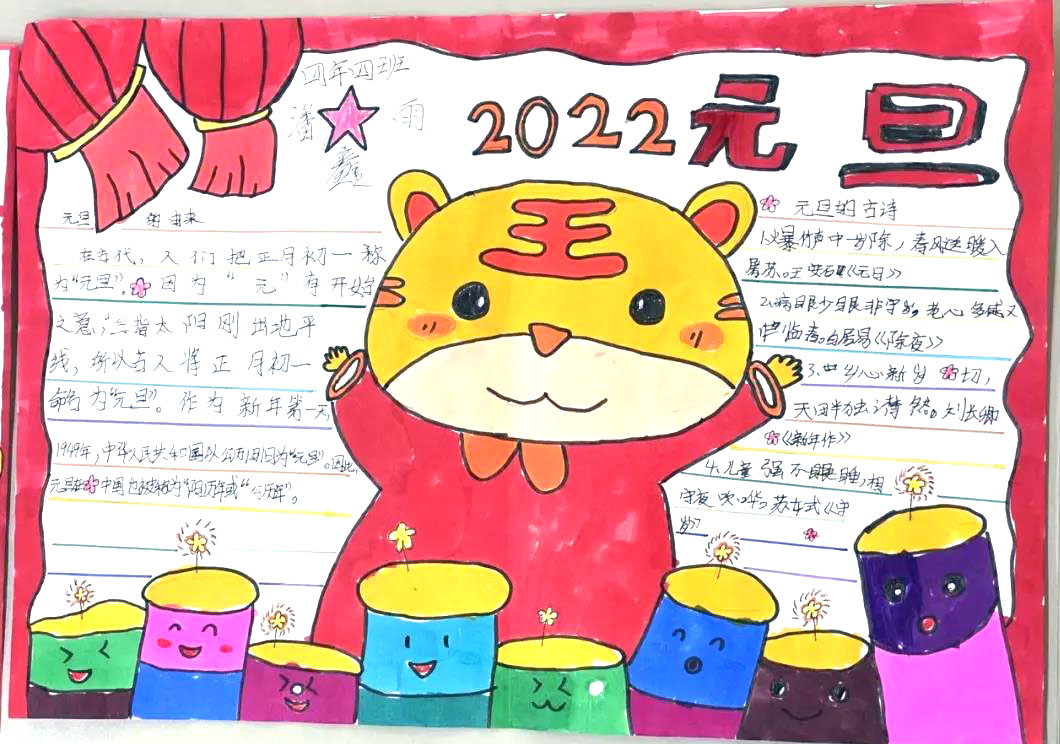 四年四班
潘 雨
鑫
2022元旦
元旦 的由来
在古代，人们把正月初一称
为“元旦”。因为“元”有开始
之意，“旦”指太阳刚出地平
线，所以古人将正月初一
命名为“元旦”。作为新年第一天
1949年，中华人民共和国以公历1月1日为“元旦”。因此，
元旦在中国也被称为“阳历年或“公历年”。
元旦的古诗
1.爆竹声中一岁除，春风送暖入
屠苏。王安石《元日》
2.病眼少眠非守岁，老心多感又
临春。白居易《除夜》
3.乡心新岁切，
天田半独潸然。刘长卿
《新年作》
4.儿童强不睡，相
守夜欢哗。苏东式《守
岁》